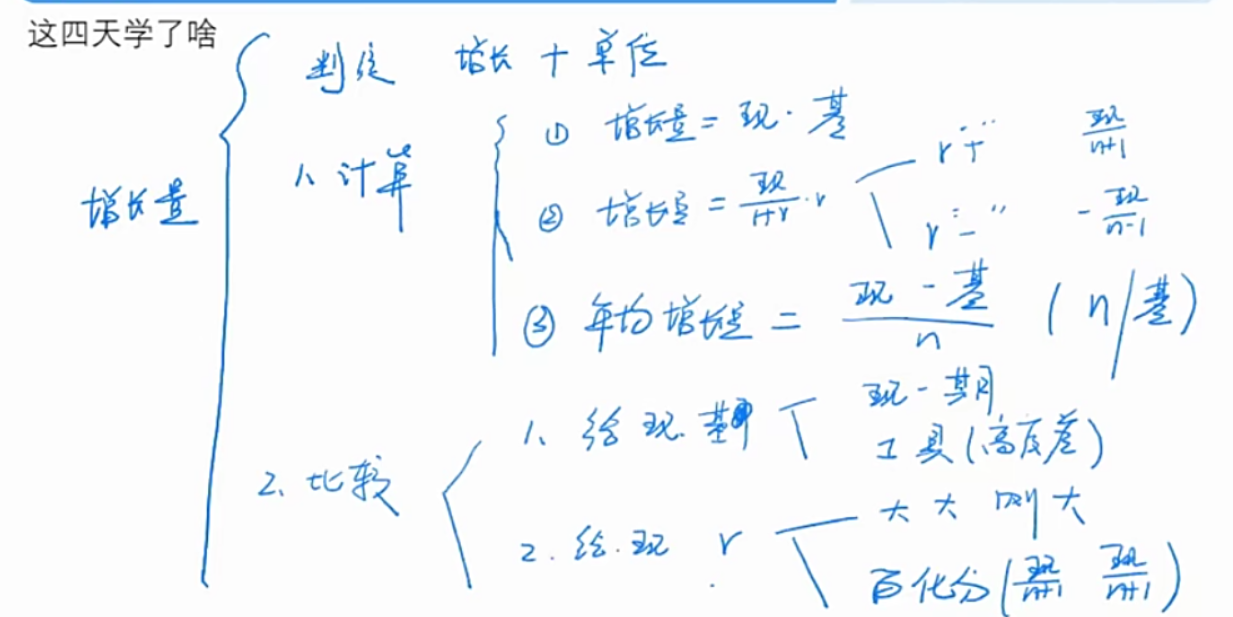 这四天学了啥
增长量
判定 增长+单位
1、计算
① 增长量=现·基
② 增长量=现/1+r·r
r"+" 现/n+1
r"-" -现/n-1
③ 年均增长量=现-基/n (n/基)
2、比较
1、给现.基期
现-期
工具(高度差)
2.给.现 r
大大则大
百化分(现/n+1 现/n+1)